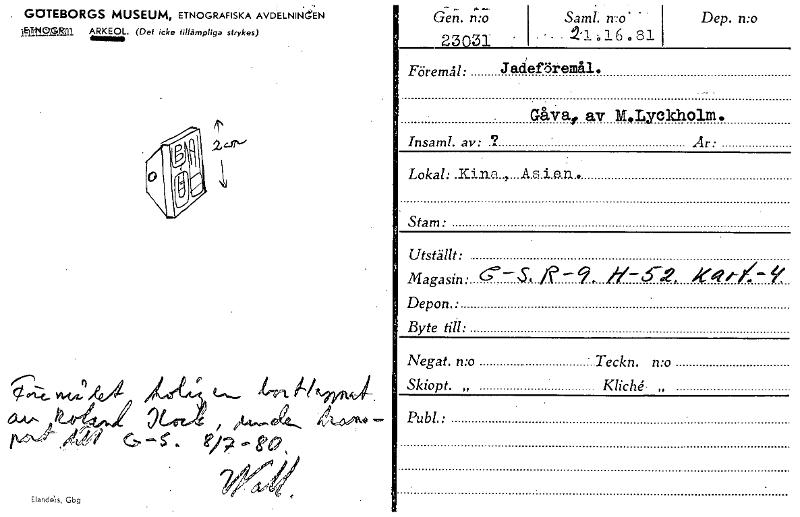 GÖTEBORGS MUSEUM, ETNOGRAFISKA AVDELNINGEN
ETNOGR. ARKEOL. (Det icke tillämpliga strykes)
2 cm
Föremålet troligen borttappat
av Roland, under trans-
port till G-S. 8/7-80.
Wall.
Elanders, Gbg
Gen. n:o Saml. n:o Dep. n:o
23031 21.16.81
Föremål: Jadeföremål.
Gåva, av M.Lyckholm.
Insaml. av: ? År:
Lokal: Kina, Asien.
Stam:
Utställt:
Magasin: G-S. R-9. H-52. Kart.-4.
Depon.:
Byte till:
Negat. n:o Teckn. n:o
Skiopt. „ Kliché „
Publ.: